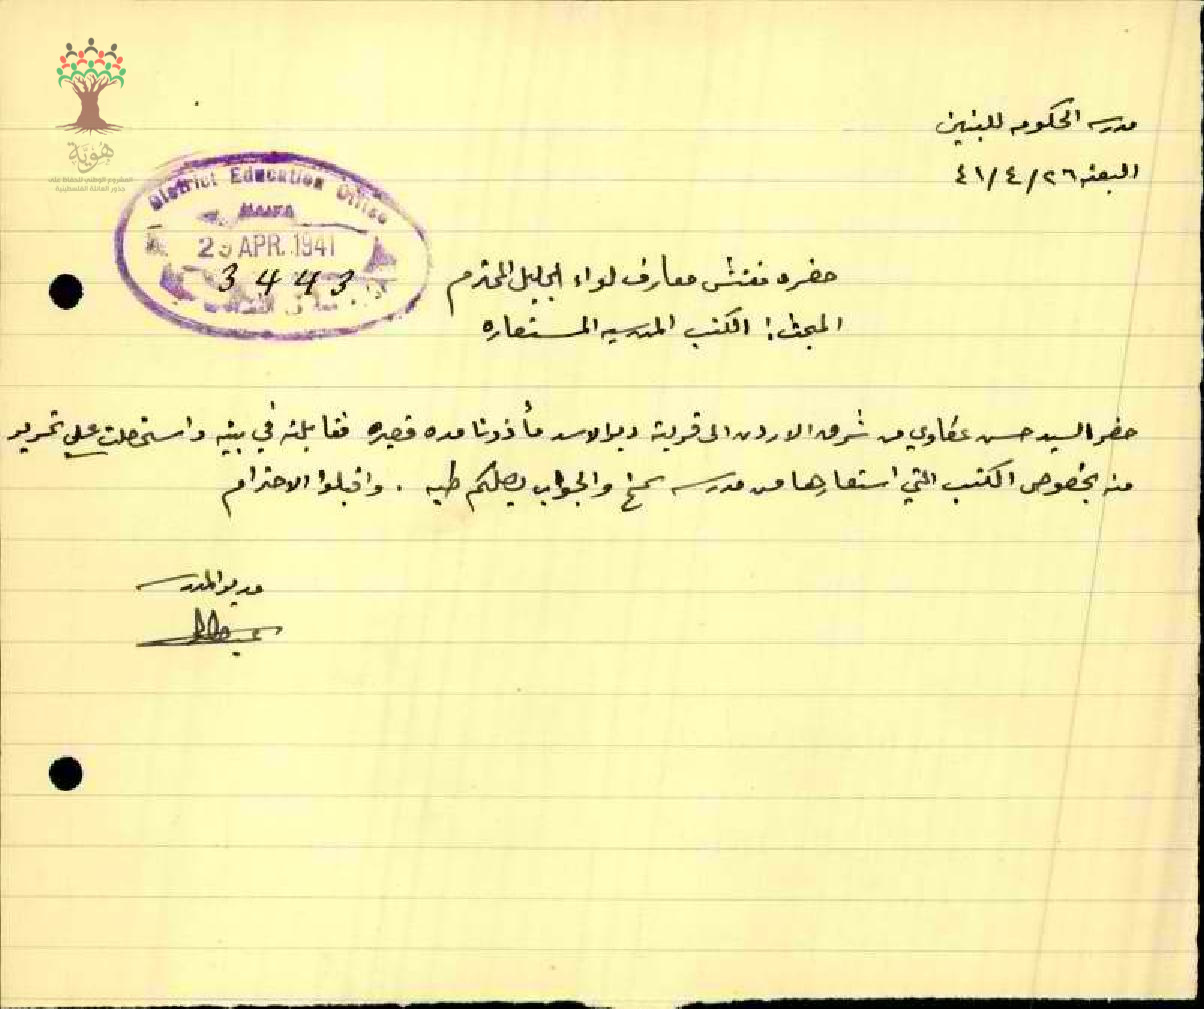 هوية
المشروع الوطني للحفاظ على
جذور العائلة الفلسطينية
مدرسه الحكومه للبنين
البعنه ٢٦/٤/٤١
District Education Office
HAIFA
29 APR. 1941
3443
حضرة مفتش معارف لواء الجليل المحترم
المبحث: الكتب المدرسيه المستعاره
حضر السيد حسن عكاوي من شرق الاردن الى قريته ديرالاسد مأذونا مده قصيره فقابلته في بيته واستحصلت على تحرير
منه بخصوص الكتب التي استعارها من مدرسه سمخ والجواب يصلكم طيه . واقبلوا الاحترام
مدير المدرسه